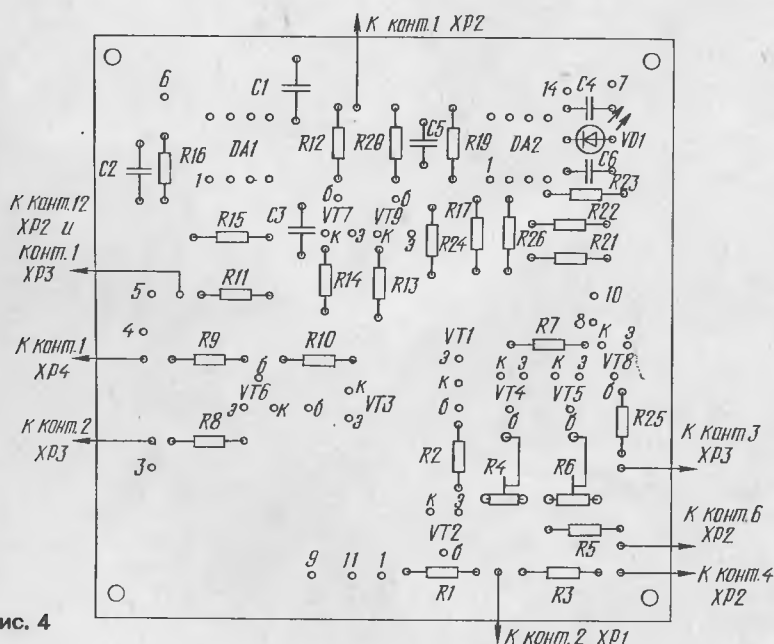 К конт.1 XP2
6
C1
14
C4
7
C2
R16
DA1
R12
R28
C5
R19
DA2
VD1
1
1
C6
R23
К конт.12
XP2 и
конт.1
XP3
R15
C3
б
VT7
к
э
б
VT9
к
э
R24
R17
R26
R22
R21
5
R11
R14
R13
10
4
8
К конт.1
XP4
R9
R10
VT1
э
к
б
R7
к
э
VT8
б
б
VT6
э
к
б
к
VT3
э
к
э
VT4
б
к
э
VT5
б
R25
К конт.2
XP3
R8
3
R2
R4
R6
К конт.3
XP3
к
э
VT2
б
R5
К конт.6
XP2
9
11
1
R1
R3
К конт.4
XP2
ис. 4
К конт.2 XP1